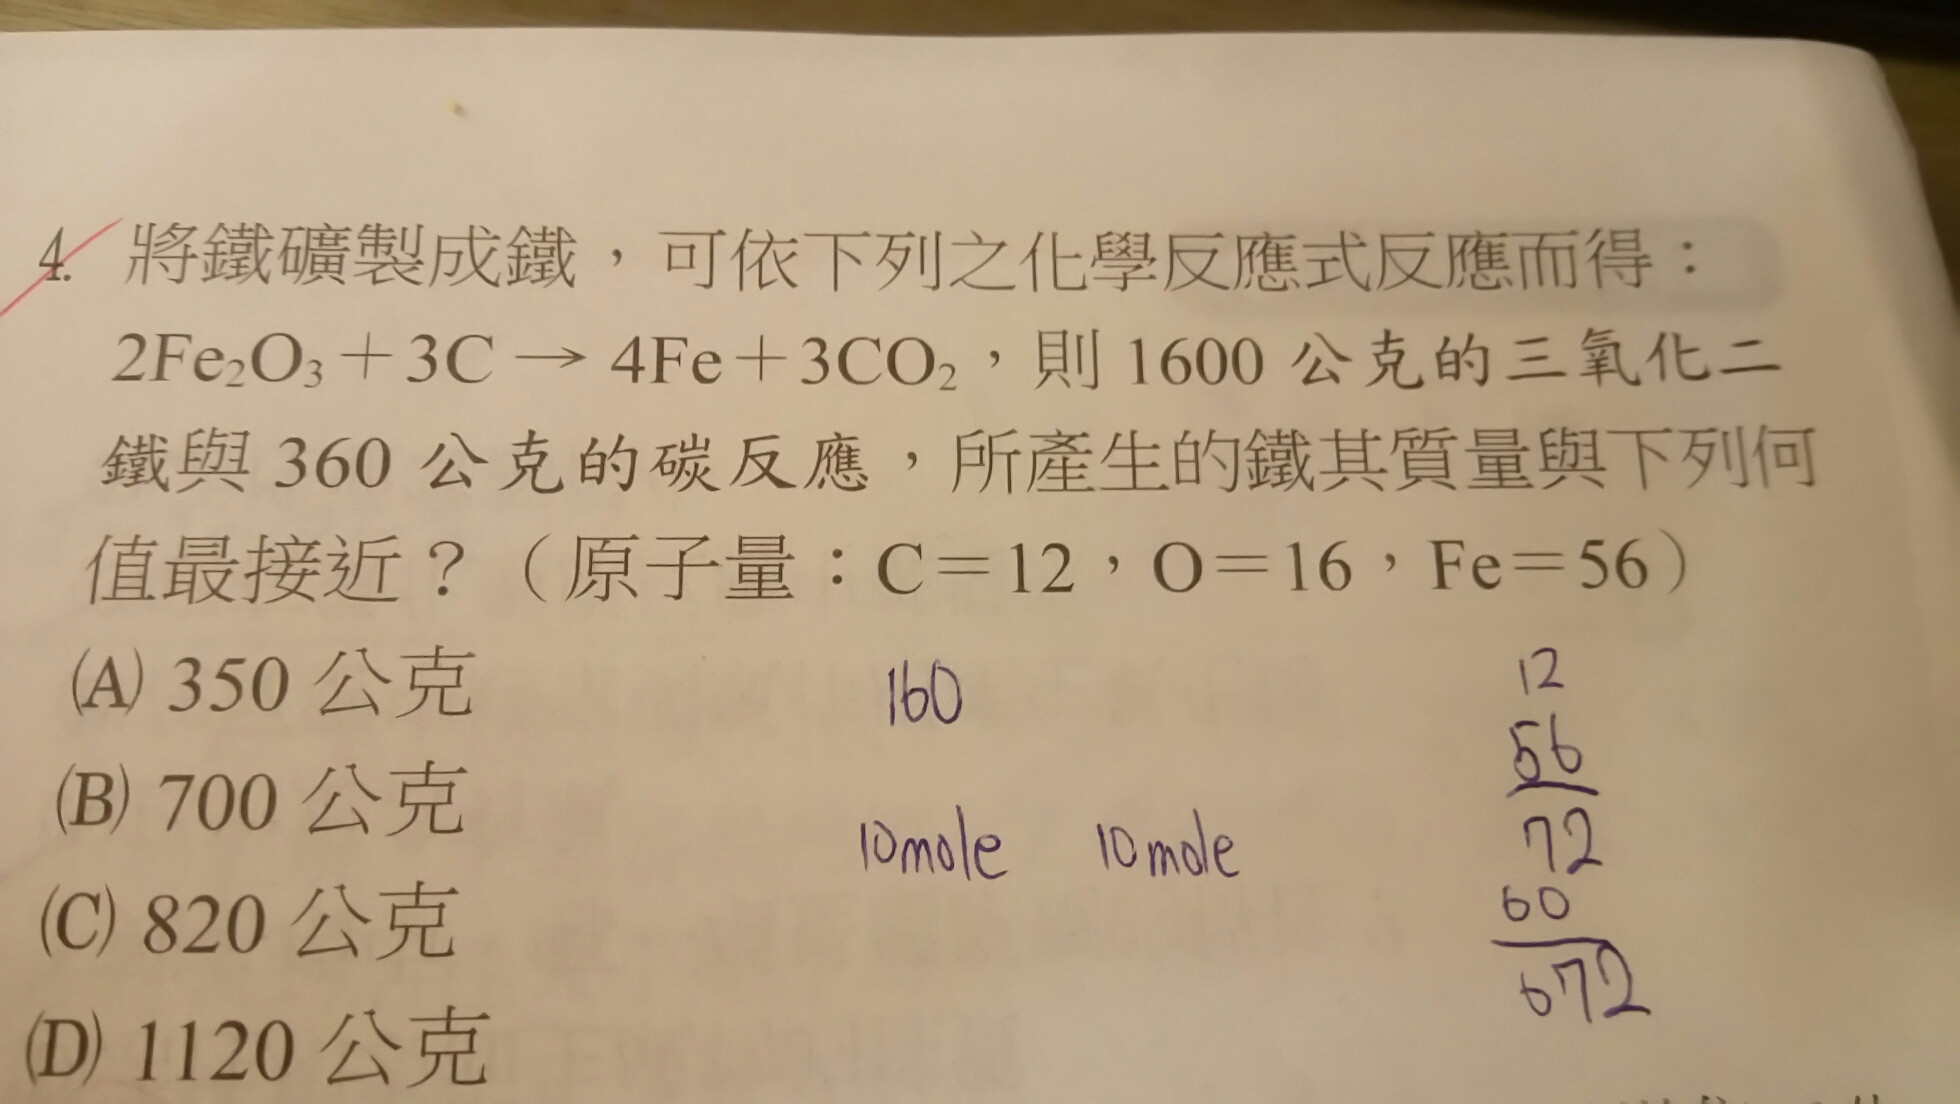 4. 將鐵礦製成鐵，可依下列之化學反應式反應而得：
2Fe₂O₃＋3C → 4Fe＋3CO₂，則 1600 公克的三氧化二
鐵與 360 公克的碳反應，所產生的鐵其質量與下列何
值最接近？（原子量：C＝12，O＝16，Fe＝56）
(A) 350 公克
(B) 700 公克
(C) 820 公克
(D) 1120 公克
160
10mole 10mole
12
56
72
60
672